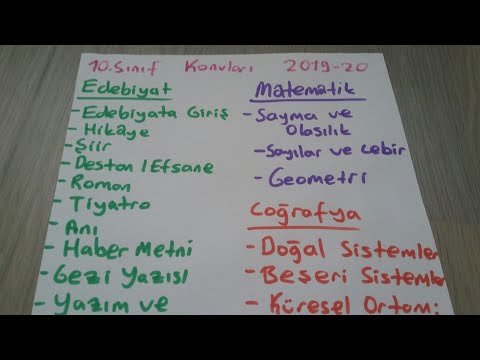 10.Sınıf Konuları 2019-20
Edebiyat
- Edebiyata Giriş
- Hikaye
- Şiir
- Destan / Efsane
- Roman
- Tiyatro
- Anı
- Haber Metni
- Gezi Yazısı
- Yazım ve
Matematik
- Sayma ve
Olasılık
- Sayılar ve Cebir
- Geometri
Coğrafya
- Doğal Sistemler
- Beşeri Sistemler
- Küresel Ortam: